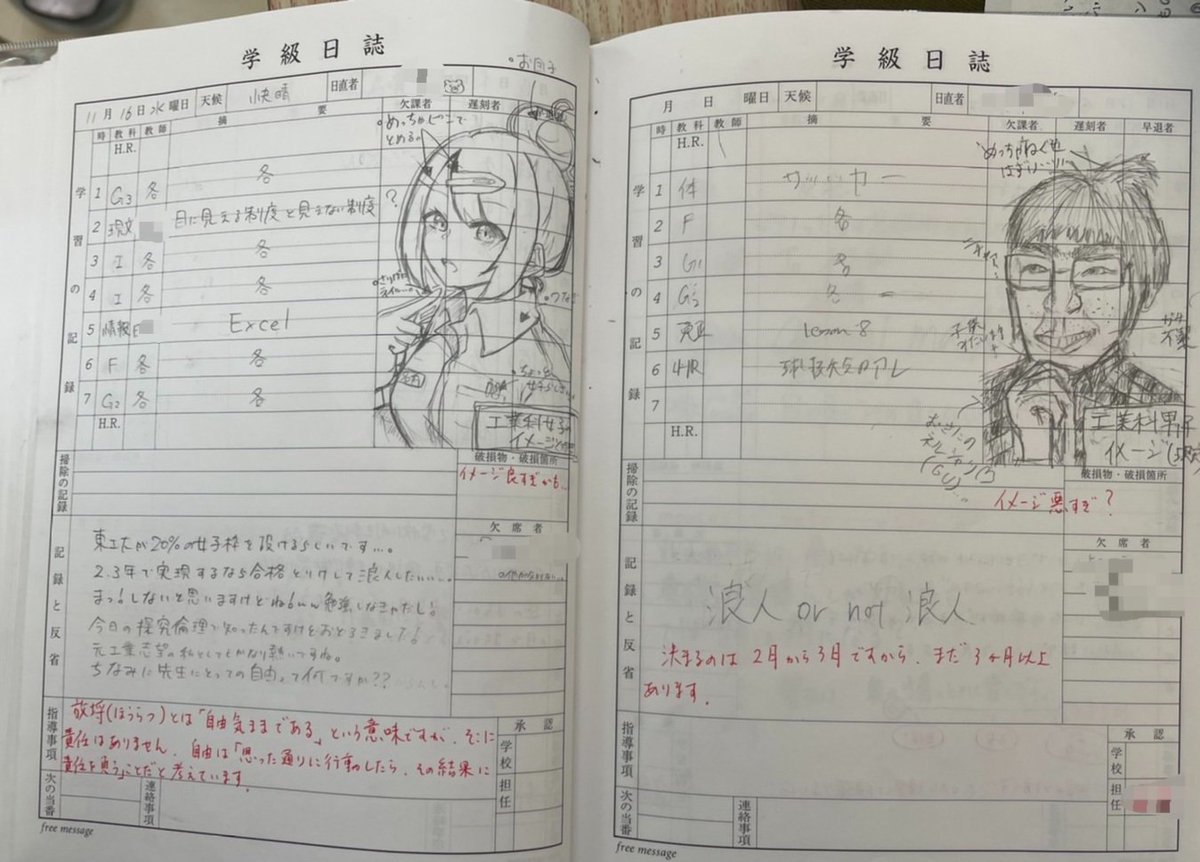 学級日誌
・お団子
11月16日水曜日 天候 快晴 日直者
欠課者 遅刻者
時 教科 教師 摘要
H.R.
学習の記録
1 G3 各 各
2 現文 目に見える制度と見えない制度
3 I 各 各
4 I 各 各
5 情報 Excel
6 F 各 各
7 G2 各 各
H.R.
とめる。
?
工業科女子
イメージ
掃除の記録
破損物・破損箇所
イメージ良すぎかも…
欠席者
記録と反省
東工大が20%の女子枠を設けるらしいです…。
2.3年で実現するなら合格とりけして浪人したいい…。
まっ!しないと思いますけどねもww勉強しなきゃだし!
今日の探究倫理で知ったんですけどおどろきました!
元工業志望の私としてもかなり熱いですね。
ちなみに先生にとっての自由って何ですか??
指導事項
放埓(ほうらつ)とは「自由気ままである」という意味ですが、そこに
責任はありません。自由は「思った通りに行動したら、その結果に
責任を負う」ことだと考えています。
承認
学校
担任
次の当番
連絡事項
free message
学級日誌
月 日 曜日 天候 日直者
時 教科 教師 摘要 欠課者 遅刻者 早退者
H.R.
学習の記録
1 体 サッカー
2 F 各
3 G1 各
4 G2 各
5 lesson 8
6 LHR
7
H.R.
工業科男子
イメージ
掃除の記録
破損物・破損箇所
イメージ悪すぎ?
欠席者
記録と反省
浪人 or not 浪人
決まるのは2月から3月ですから、まだ3ヶ月以上
あります。
指導事項
承認
学校
担任
次の当番
連絡事項
free message